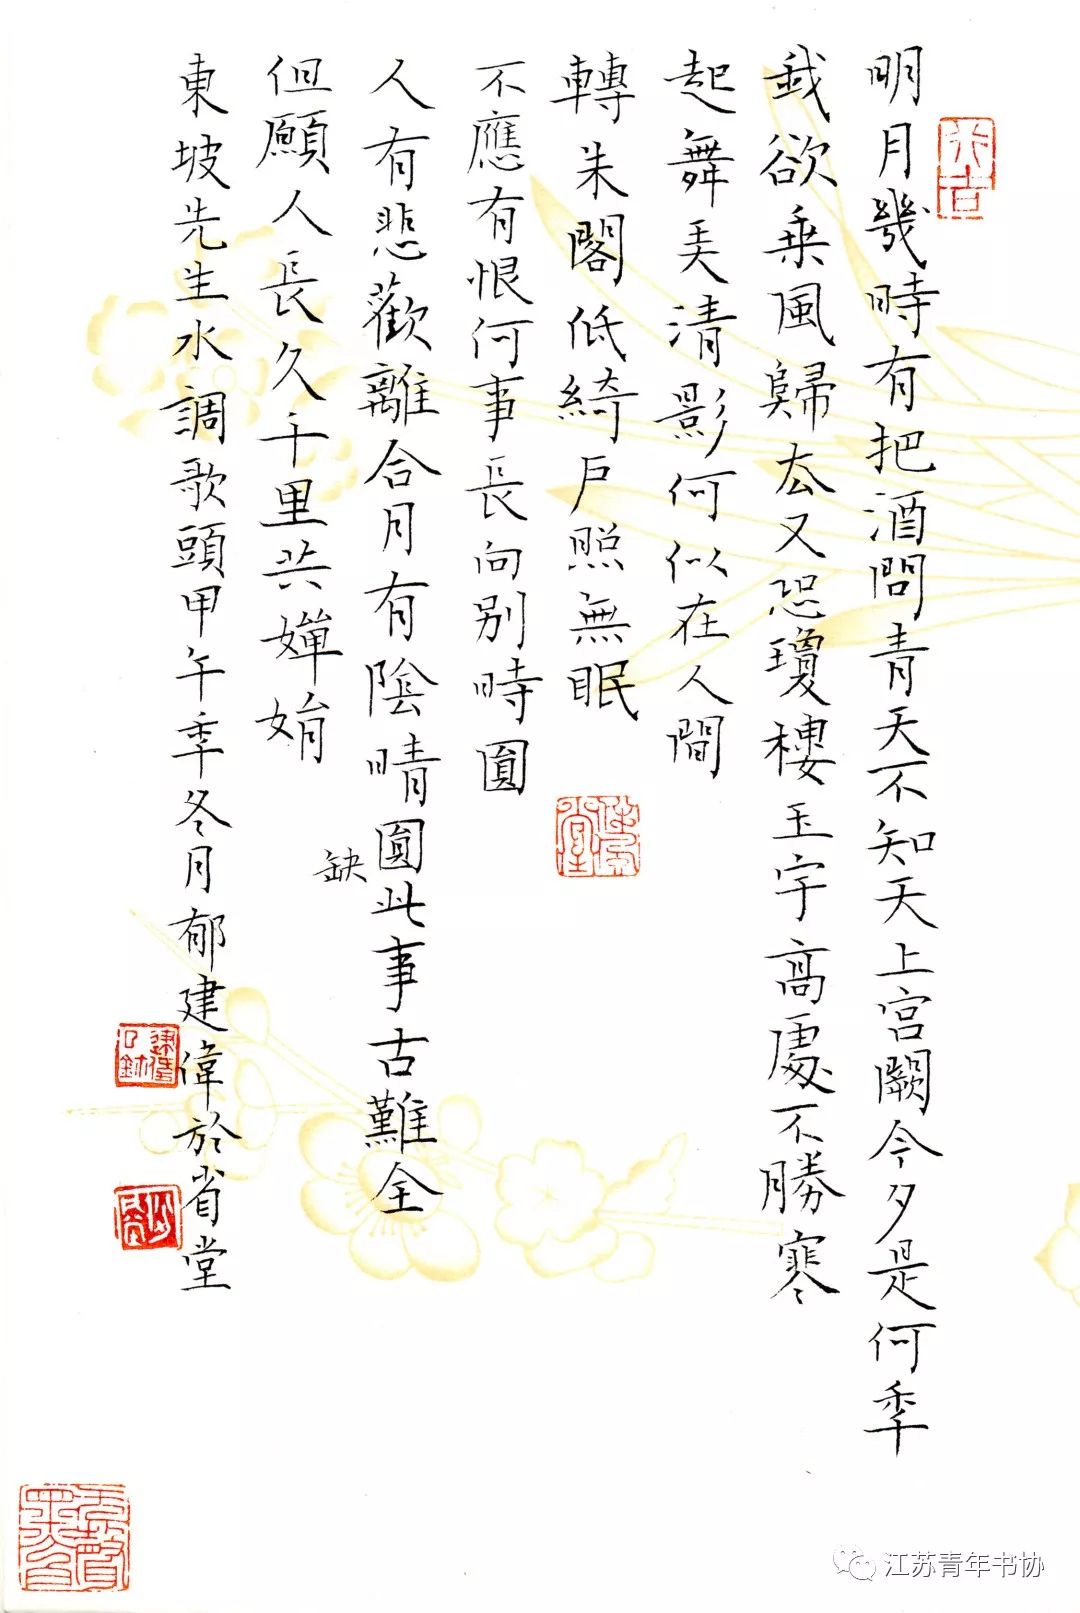 明月幾時有把酒問青天不知天上宮闕今夕是何秊
我欲乗風歸去又恐瓊樓玉宇高處不勝寒
起舞弄清影何似在人間
轉朱閣低綺户照無眠
不應有恨何事長向别時圓
人有悲歡離合月有陰晴圓此事古難全
缺
但願人長久千里共嬋娟
東坡先生水調歌頭甲午秊冬月郁建偉於省堂
江苏青年书协